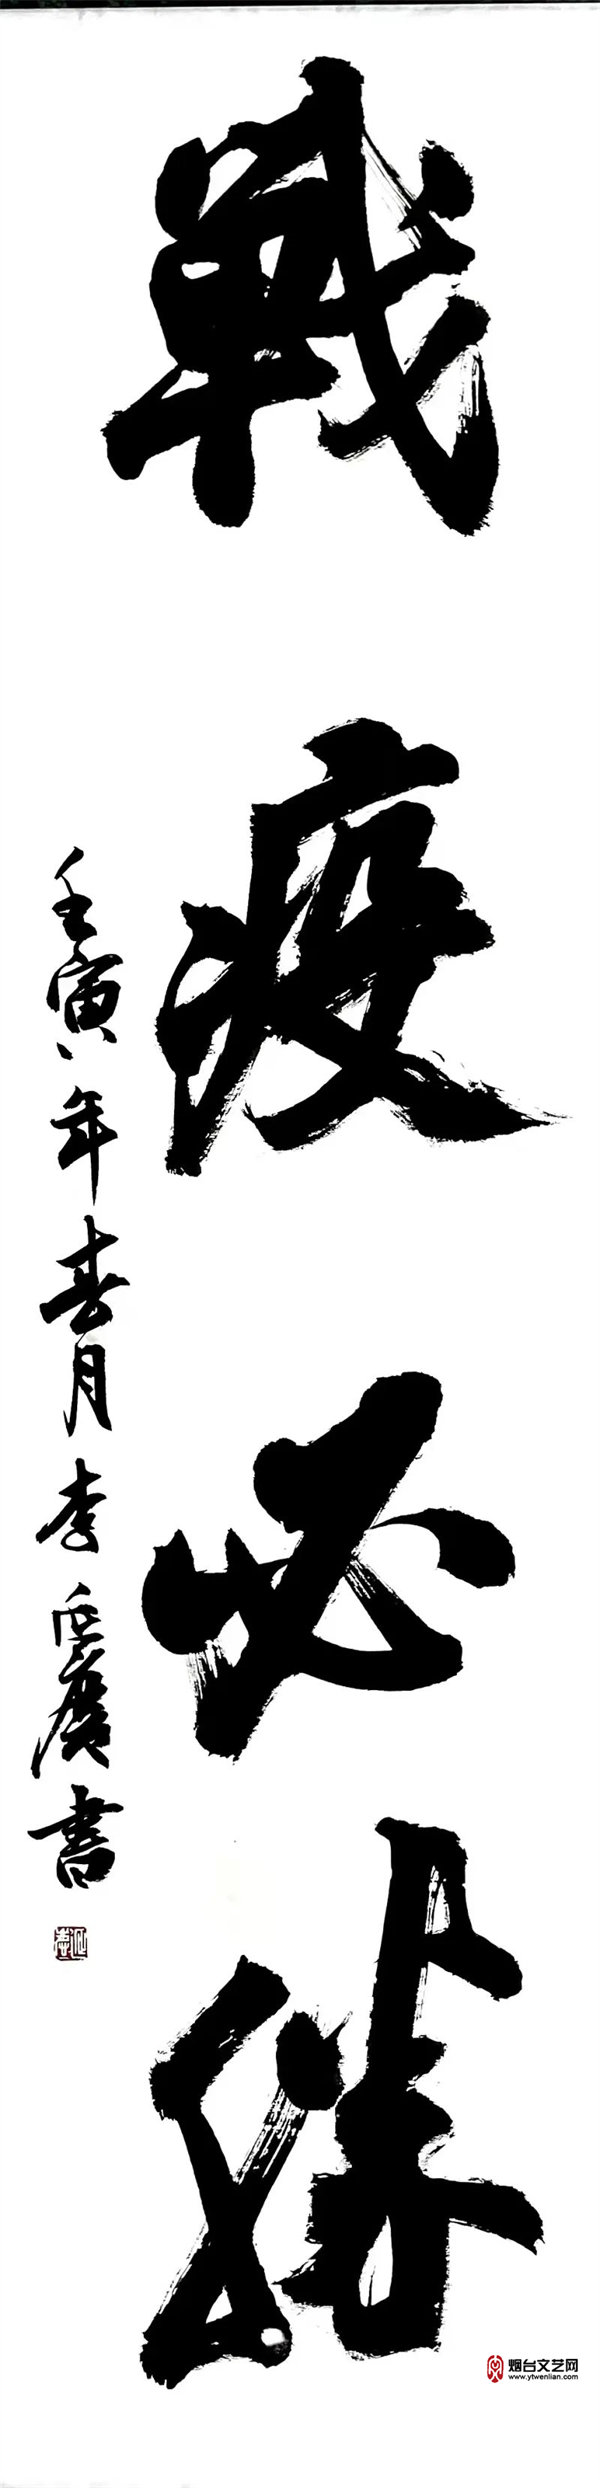 戰疫必勝
壬寅年春月李書
烟台文艺网
www.ytwenlian.com